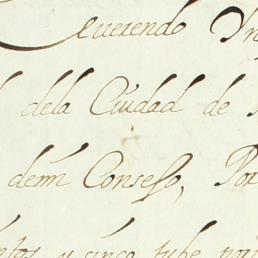 Reverendo
dela Ciudad de
demi Consejo, Por
y cinco tube